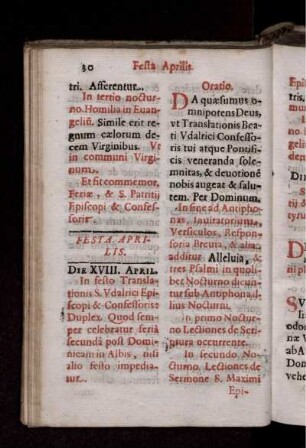 30 Festa Aprilis.
tri. Afferentur...
In tertio noctur-
no. Homilia in Euan-
gelium. Simile erit re-
gnum cælorum de-
cem Virginibus. Vt
in communi Virgi-
num.
Et fit commemor.
Feriæ, & S. Patritij
Episcopi & Confes-
soris.
FESTA APRI-
LIS.
DIE XVIII. APRIL.
In festo Transla-
tionis S. Vdalrici Epi-
scopi & Confessoris
Duplex. Quod sem-
per celebratur feriâ
secundâ post Domi-
nicam in Albis, nisi
alio festo impedia-
tur...
Oratio.
DA quæsumus o-
mnipotens Deus,
vt Translationis Bea-
ti Vdalrici Confesso-
ris tui atque Pontifi-
cis veneranda sole-
mnitas, & deuotionẽ
nobis augeat & salu-
tem. Per Dominum.
In fine ad Antipho-
nas, Inuitatorium,
Versiculos, Respon-
soria Breuia, &
additur Alleluia, &
tres Psalmi in quoli-
bet Nocturno dicun-
tur sub Antiphona il-
lius Nocturni.
In primo Noctur-
no Lectiones de Scri-
ptura occurrente.
In secundo No-
cturno, Lectiones de
Sermone S. Maximi
Epi-